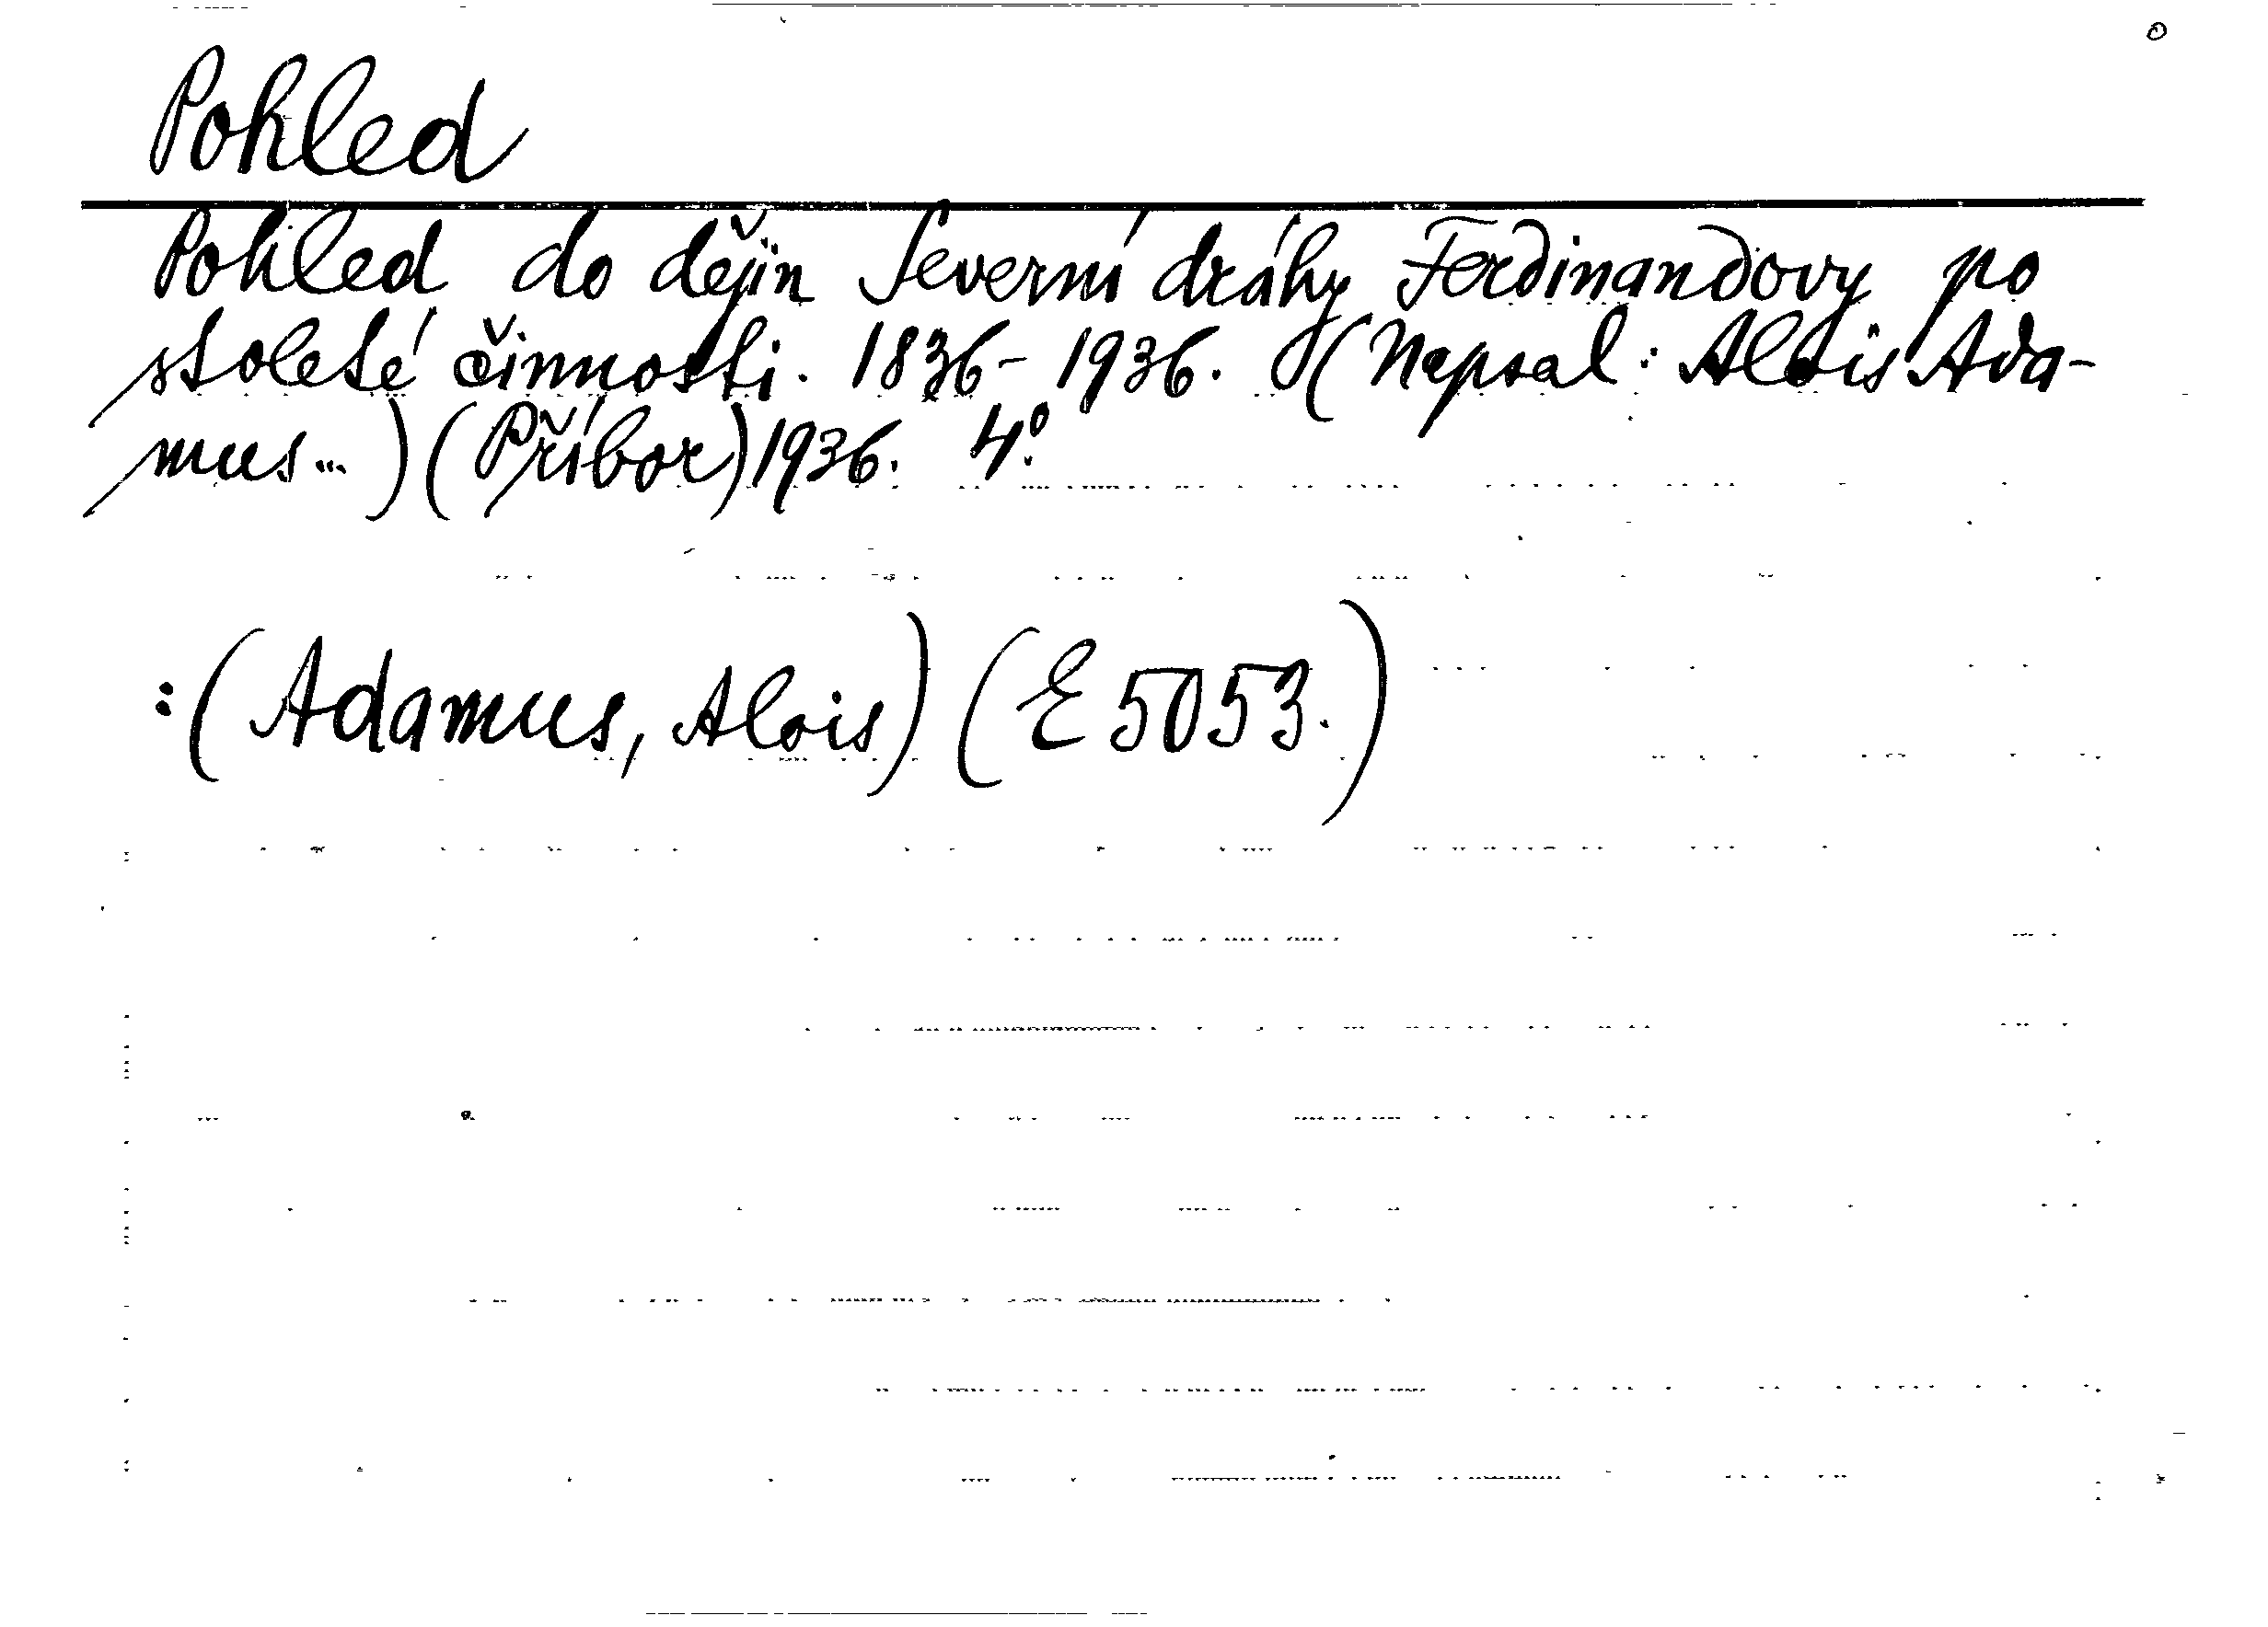 Pohled
Pohled do dějin Severní dráhy Ferdinandovy po
stoleté činnosti. 1836-1936. (Napsal: Alois Ada-
mus...) (Příbor) 1936. 4°.
:(Adamus, Alois) (E 5053.)